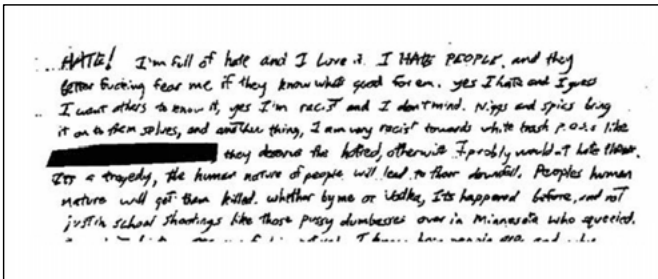 HATE! I'm full of hate and I love it. I HATE PEOPLE. and they
better fucking fear me if they know whats good for em. yes I hate and I guess
I want others to know it, yes I'm racist and I don't mind. Nigs and spics bring
it on to them selves, and another thing, I am very racist towards white trash P.O.S.s like
they deserve the hatred, otherwise I probly would nt hate them.
Its a tragedy, the human nature of people will lead to their downfall. Peoples human
nature will get them killed. whether by me or Vodka, Its happened before, and not
just in school shootings like those pussy dumbasses over in Minnesota who squeeled.